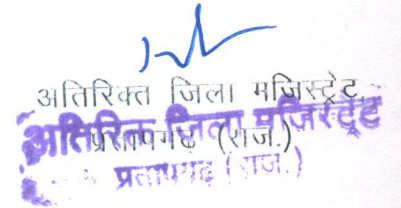 अतिरिक्त जिला मजिस्ट्रेट
प्रतापगढ (राज.)
अतिरिक्त जिला मजिस्ट्रेट
प्रतापगढ़ (राज.)